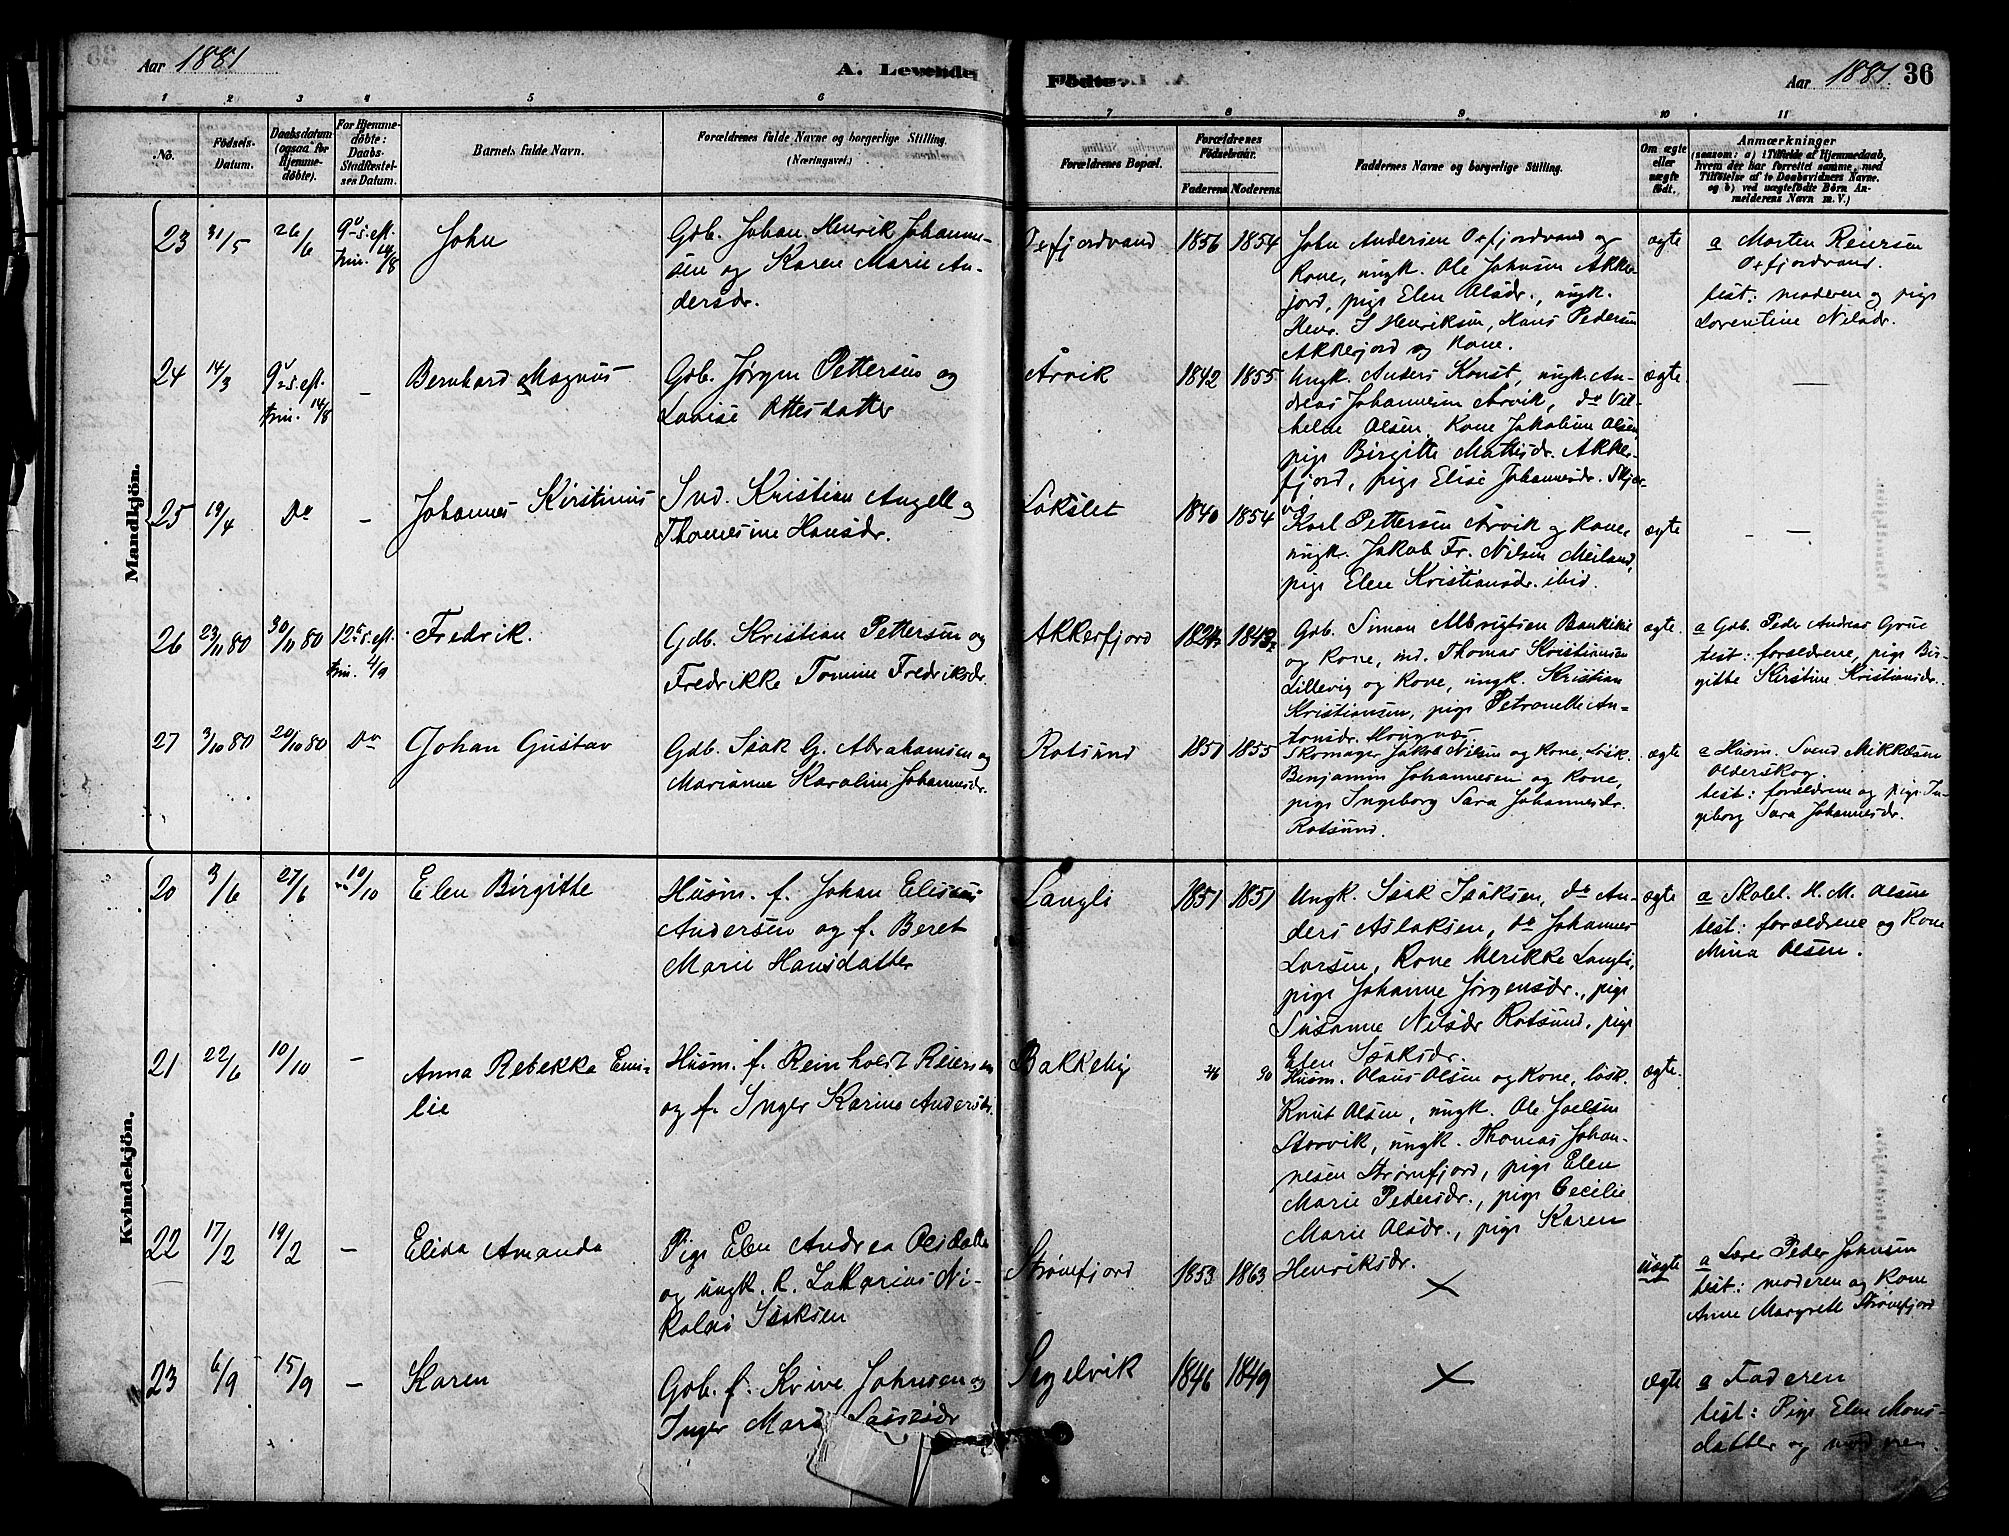 Aar 1881
A. Levende
Födte.
Aar 1881.
36
1 2 3 4 5 6 7 8 9 10 11
No.
Födsels-
Datum.
Daabsdatum
(ogsaa for
Hjemme-
döbte).
For Hjemme-
döbte:
Daabs-
Stadfæstel-
ses Datum.
Barnets fulde Navn.
Forældrenes fulde Navne og borgerlige Stilling.
(Næringsvei.)
Forældrenes Bopæl.
Forældrenes
Födselsaar.
Faderens.
Moderens.
Faddernes Navne og borgerlige Stilling.
Om ægte
eller
uægte
födt.
Anmærkninger
(saasom: a) i Tilfælde af Hjemmedaab,
hvem der har forrettet samme, med
Tilföielse af to Daabsvidners Navne,
og b) ved uægtefödte Börn An-
melderens Navn m. V.)
Mandkjön.
23
31/5
26/6
9 s. eft.
trin. 14/8
John
Gdb. Johan Henrik Johanne-
sen og Karen Marie An-
dersdr.
Oxfjordvand
1856
1854
John Andersen Oxfjordvand og
Kone, ungk. Ole Johnsen Akke-
fjord, pige Elen Olsdr., ungk.
Henr. I Henriksen, Hans Pedersen
Akkerfjord og Kone.
ægte
a Morten Reiersen
Oxfjordvand.
test: moderen og pige
Lorentine Nilsdr.
24
14/3
9 s. eft.
trin. 14/8
-
Bernhard Magnus
Gdb. Jørgen Pettersen og
Lovise Ottesdatter
Årvik
1842
1855
Ungk. Anders Konst, ungk. An-
dreas Johannesen Årvik, do Vil-
helm Olsen, Kone Jakobine Olsen,
pige Birgitte Mathisdr. Akker-
fjord, pige Elise Johannesdr. Skjer-
ægte.
-
25
19/4
Do
-
Johannes Kirstinus
Ind. Kristian Angell og
Thomesine Hansdr.
Lökslet
1840
1854
Karl Pettersen Årvik og Kone,
ungk. Jakob Fr. Nilsen Meiland,
pige Elen Kristiansdr. ibid.
ægte
-
26
23/11 80
30/11 80
12 s. eft.
trin. 4/9
Fredrik.
Gdb. Kristian Pettersen og
Fredrikke Tomine Fredriksdr.
Akkerfjord
1824
1843
Gdb. Simon Albrigtsen Bankekie
og Kone, ind. Thomas Kristiansen
Lillevig og Kone, ungk. Kristian
Kristiansen, pige Petronelle An-
tonsdr. Hougnæs
ægte.
a Gdb. Peder Andreas Grue
test: forældrene, pige Bir-
gitte Kirstine Kristiansdr.
27
3/10 80
20/10 80
Do
Johan Gustav
Gdb. Isak G. Abrahamsen og
Marianne Karoline Johannesdr.
Rotsund
1851
1855
Skomager Jakob Nilsen og Kone, løsk.
Benjamin Johannesen og Kone,
pige Ingeborg Sara Johannesdr.
Rotsund.
ægte
a Husm. Svend Mikkelsen
Olderskog.
test: forældrene og pige In-
geborg Sara Johannesdr.
Kvindekjön.
20
3/6
27/6
10/10
Elen Birgitte
Husm. f. Johan Eliseus
Andersen og f. Beret
Marie Hansdatter
Langli
1851
1851
Ungk. Isak Isaksen, do An-
ders Aslaksen, do Johannes
Larsen, Kone Ulrikke Langli,
pige Johanne Jørgensdr., pige
Susanne Nilsdr Rotsund, pige
Elen Isaksdr.
ægte
a Skolel. H. M. Olsen
test: forældrene og Kone
Mina Olsen.
21
22/6
10/10
-
Anna Rebekka Emi-
lie
Husm. f. Reinholdt Reiersen
og f. Inger Karine Andersdr.
Bakkeby
46
30
Husm. Olaus Olsen og Kone, løsk.
Knut Olsen, ungk. Ole Joelsen
Storvik, ungk. Thomas Johan-
nesen Strømfjord, pige Elen
Marie Pedersdr., pige Cecilie
Marie Olsdr., pige Karen
Henriksdr.
ægte.
22
17/2
19/2
-
Elida Amanda
Pige Elen Andrea Olsdatter
og ungk. R. Zakarias Ni-
kolai Isaksen
Strømfjord
1853
1863
X
uægte
a Lærer Peder Johnsen
test: moderen og Kone
Anne Margrethe Strømfjord
23
6/9
15/9
-
Karen
Gdb. f. Krive Johnsen og
Inger Mari
Segelvik
1846
1849
X
ægte
a Faderen
test: Pige Elen Mons-
datter og moderen.